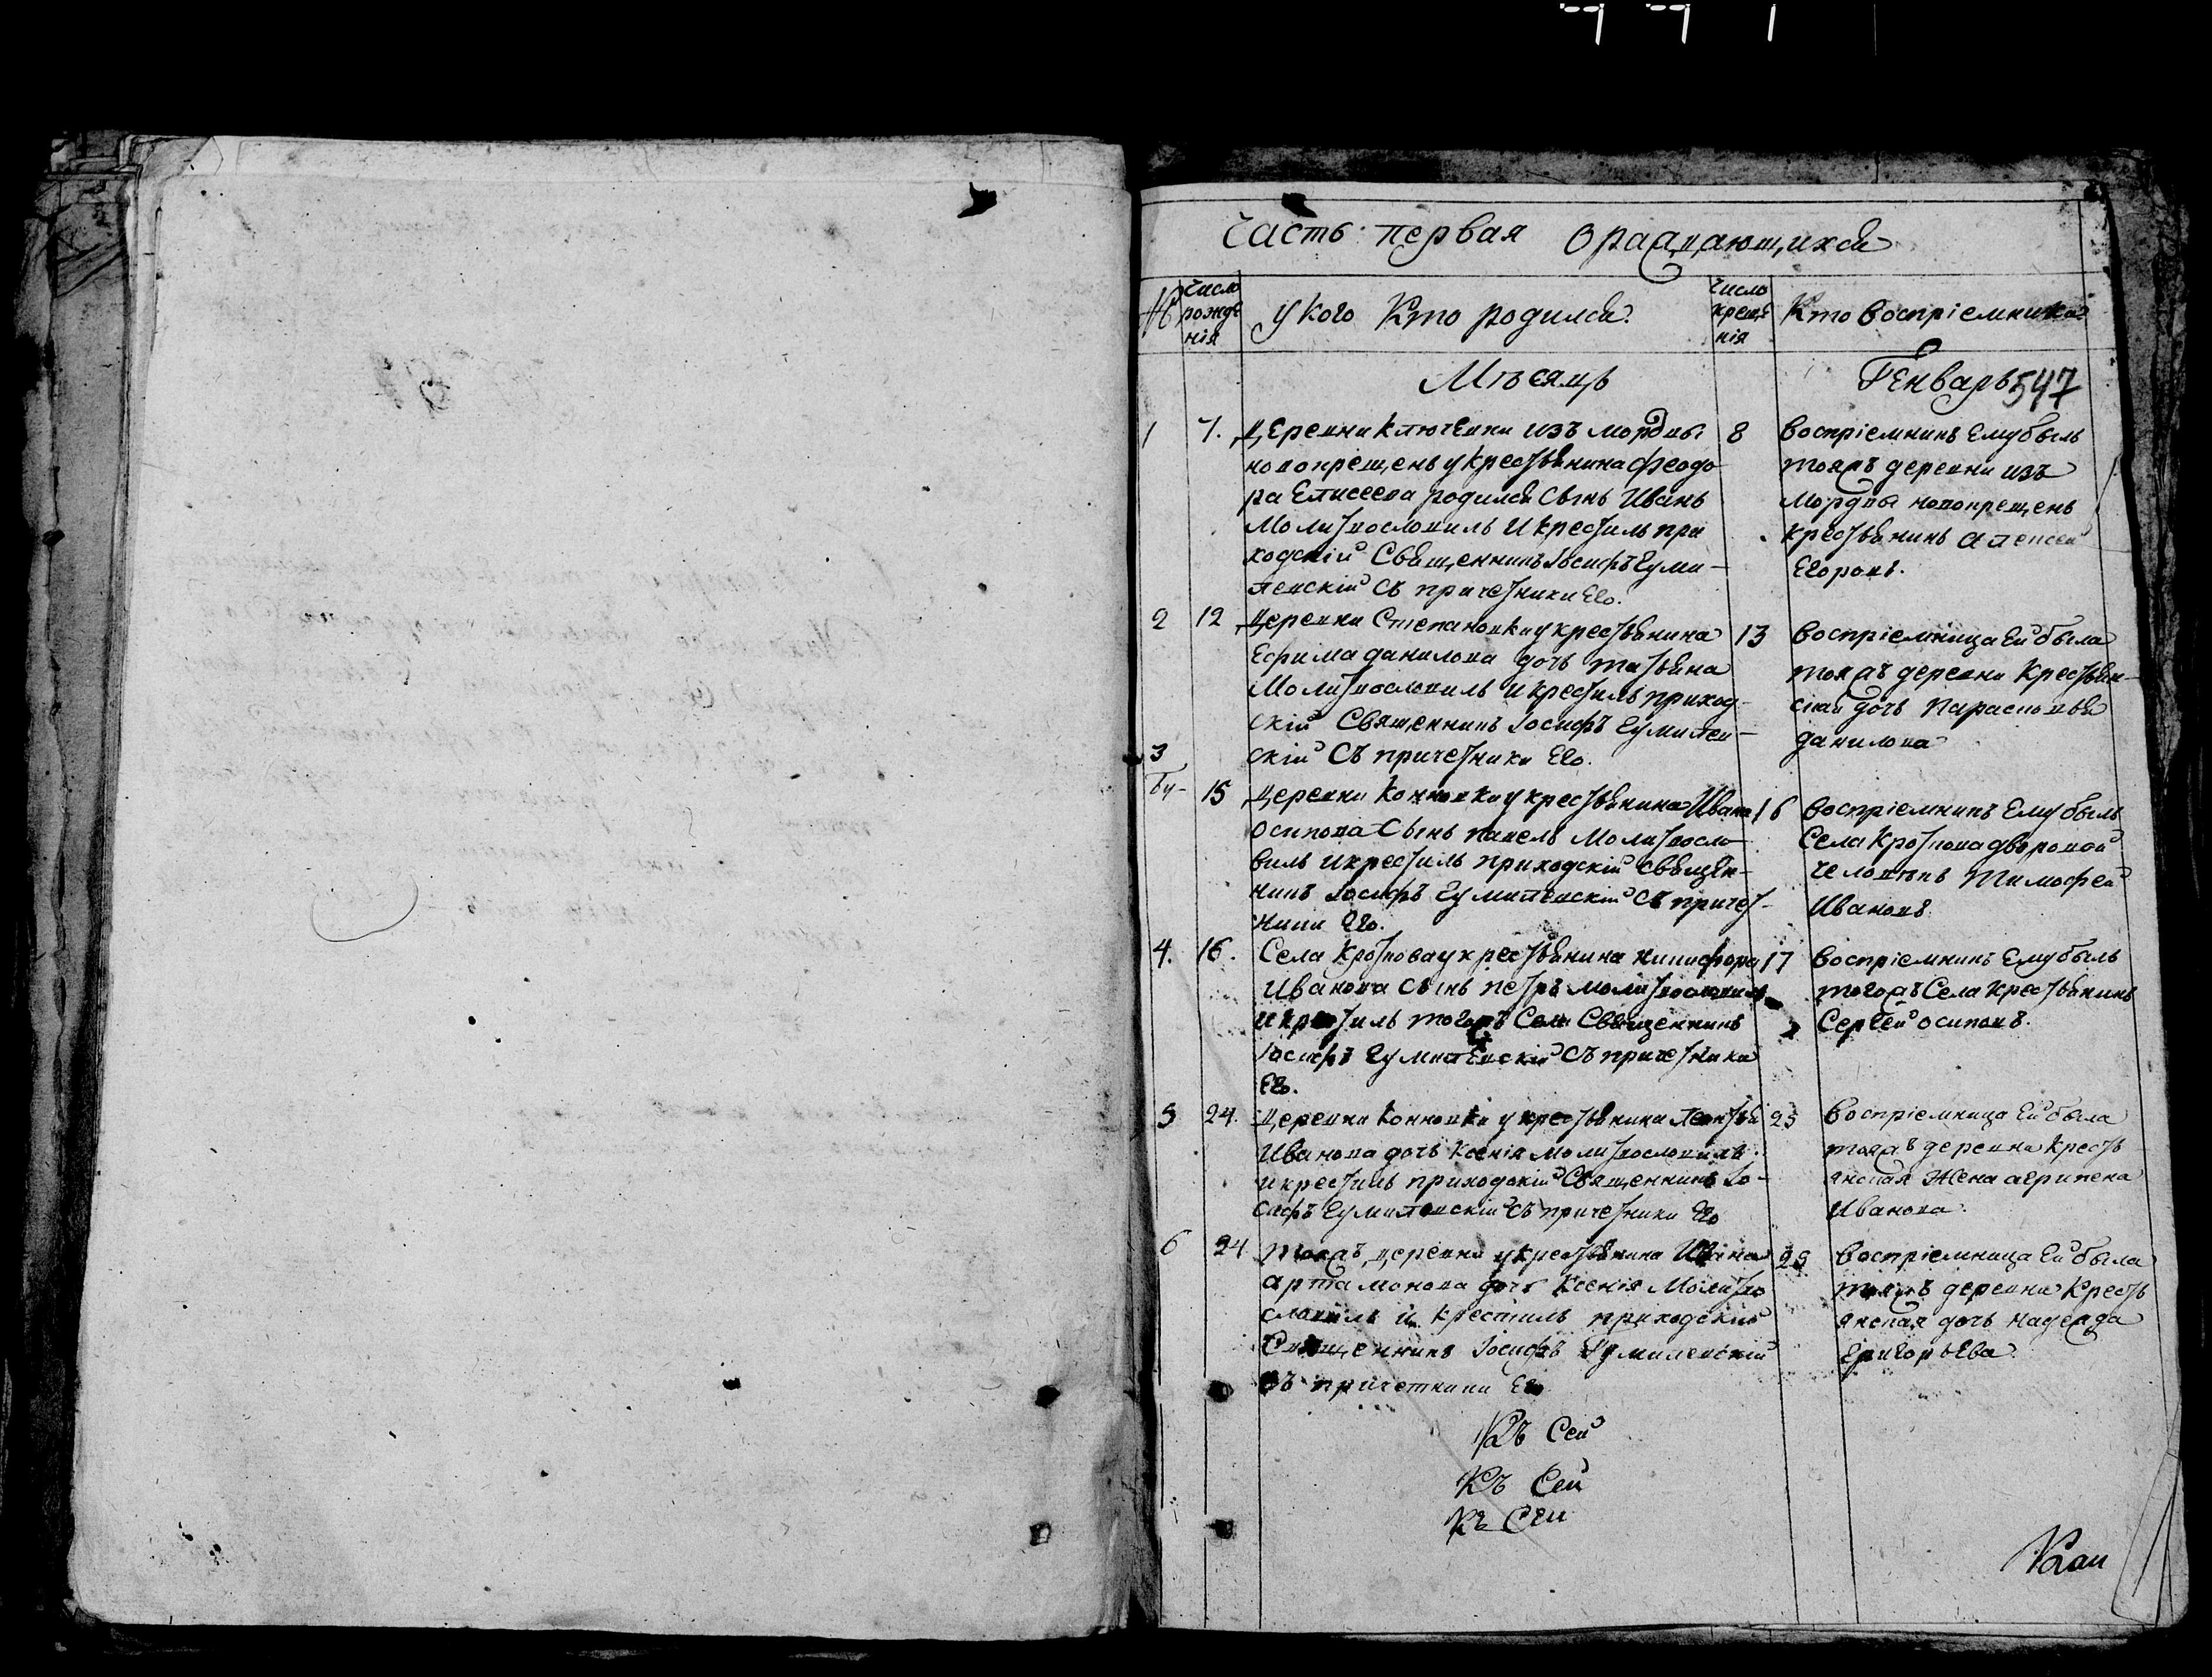 Часть первая о раждающихся
№
Число рожде нія
У кого Кто родился
Число креще нія
Кто воспріемника
Мѣсяцъ
Генварь 547
1 7. Деревни Ключевки изъ мордвы
новокрещенъ у крестьянина Феодо
ра Елисеева родился сынъ Иванъ
Молитвословилъ и крестилъ при
ходскій Священникъ Іосифъ Гуми-
левскій съ причетники Его.
8 воспріемникъ Ему былъ
тояжъ деревни изъ
мордвы новокрещенъ
крестьянинъ Алексей
Егоровъ.
2 12 Деревни Степановки у крестьянина
Ефима данилова дочь татьяна
Молитвословилъ и крестилъ приход
скій Священникъ Іосифъ Гумилев-
скій Съ причетники Его.
13 воспріемница Ей была
тояжъ деревни Крестьян-
ская дочь Парасковья
данилова
3 15 Деревни Конновки у крестьянина Ивана
осипова Сынъ павелъ Молитвосло
вилъ и крестилъ приходскій священ-
никъ Іосифъ Гумилевскій Съ причет-
ники Его.
16 воспріемникъ Ему былъ
Села Кроткова дворовой
человѣкъ Тимофей
Ивановъ
4. 16. Села Кроткова у крестьянина никифора
Иванова Сынъ петръ молитвословилъ
и крестилъ тогожъ Села Священникъ
Іосифъ Гумилевскій Съ причетники
Его.
17 воспріемникъ Ему былъ
тогожъ Села Крестьянинъ
Сергей осиповъ.
5 24. Деревни Конновки у крестьянина Леонтья
Иванова дочь Ксенія молитвословилъ
и крестилъ приходскій Священникъ Іо-
сифъ Гумилевскій Съ причетники Его
25 воспріемница Ей была
тояжъ деревни Кресть
янская Жена агрипена
Иванова.
6 24 тояжъ деревни у крестьянина Ивана
артамонова дочь Ксенія Молитво
словилъ и крестилъ приходскій
Священникъ Іосифъ Гумилевскій
съ причетники Его
25 воспріемница Ей была
тояжъ деревни Кресть
янская дочь надежда
григорьева.
Къ Сей
Къ Сей
Къ Сей